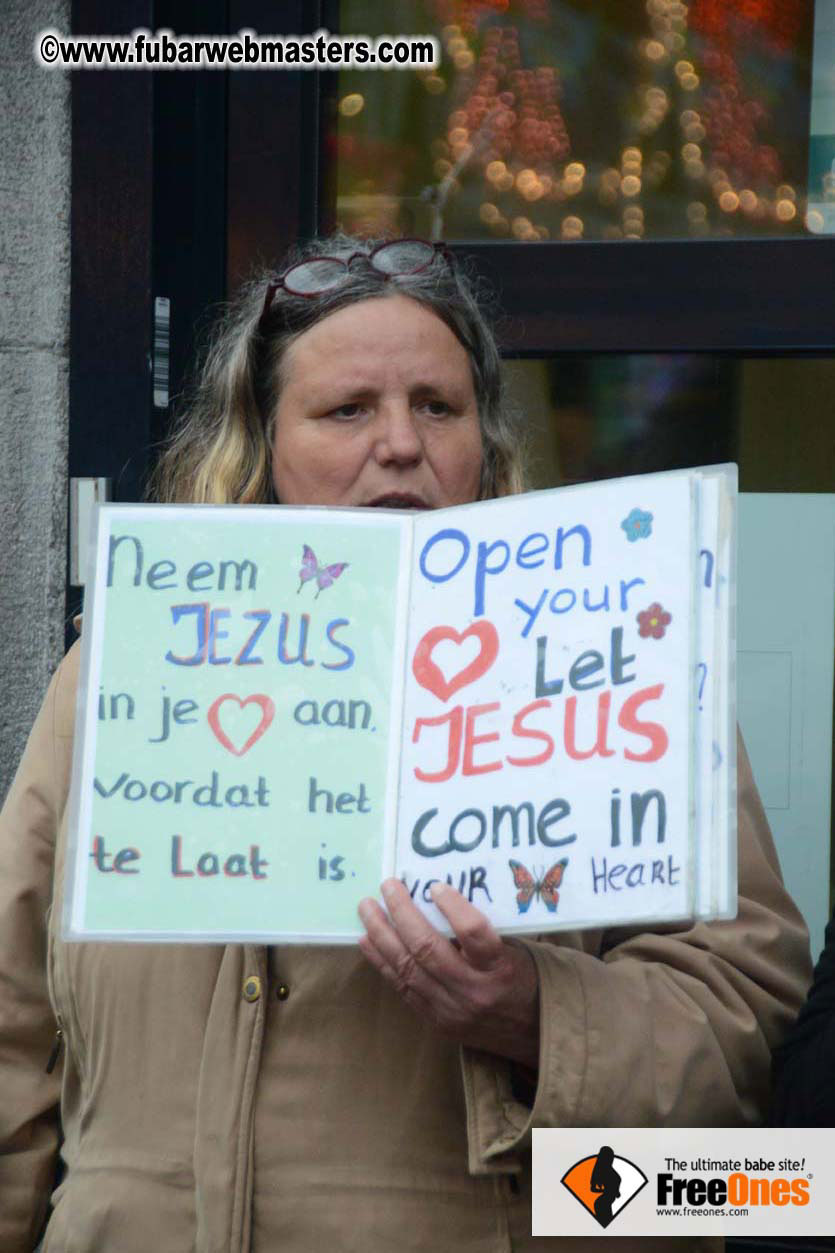 ©www.fubarwebmasters.com
Neem
JEZUS
in je aan.
voordat het
te Laat is.
Open
your
Let
JESUS
come in
YOUR Heart
?
?
The ultimate babe site!
FreeOnes®
www.freeones.com